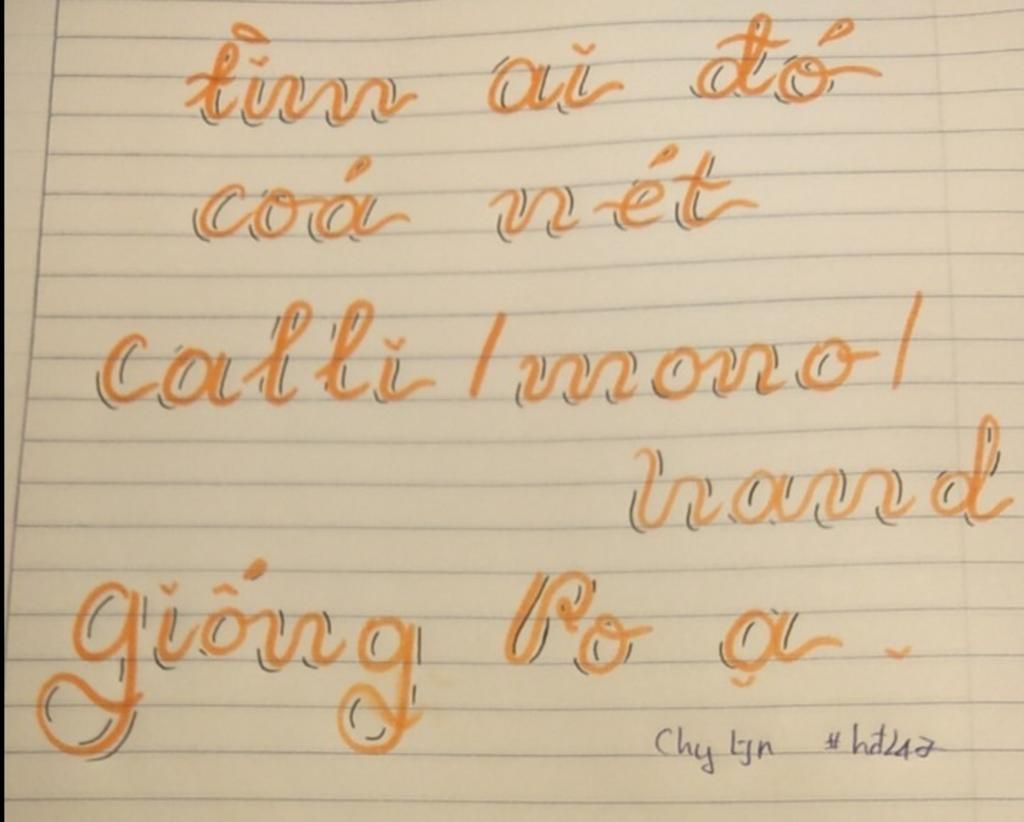 tìm ai đó
coá nét
calli/mono/
hand
giống Po ạ.
Chy Lyn #hd247